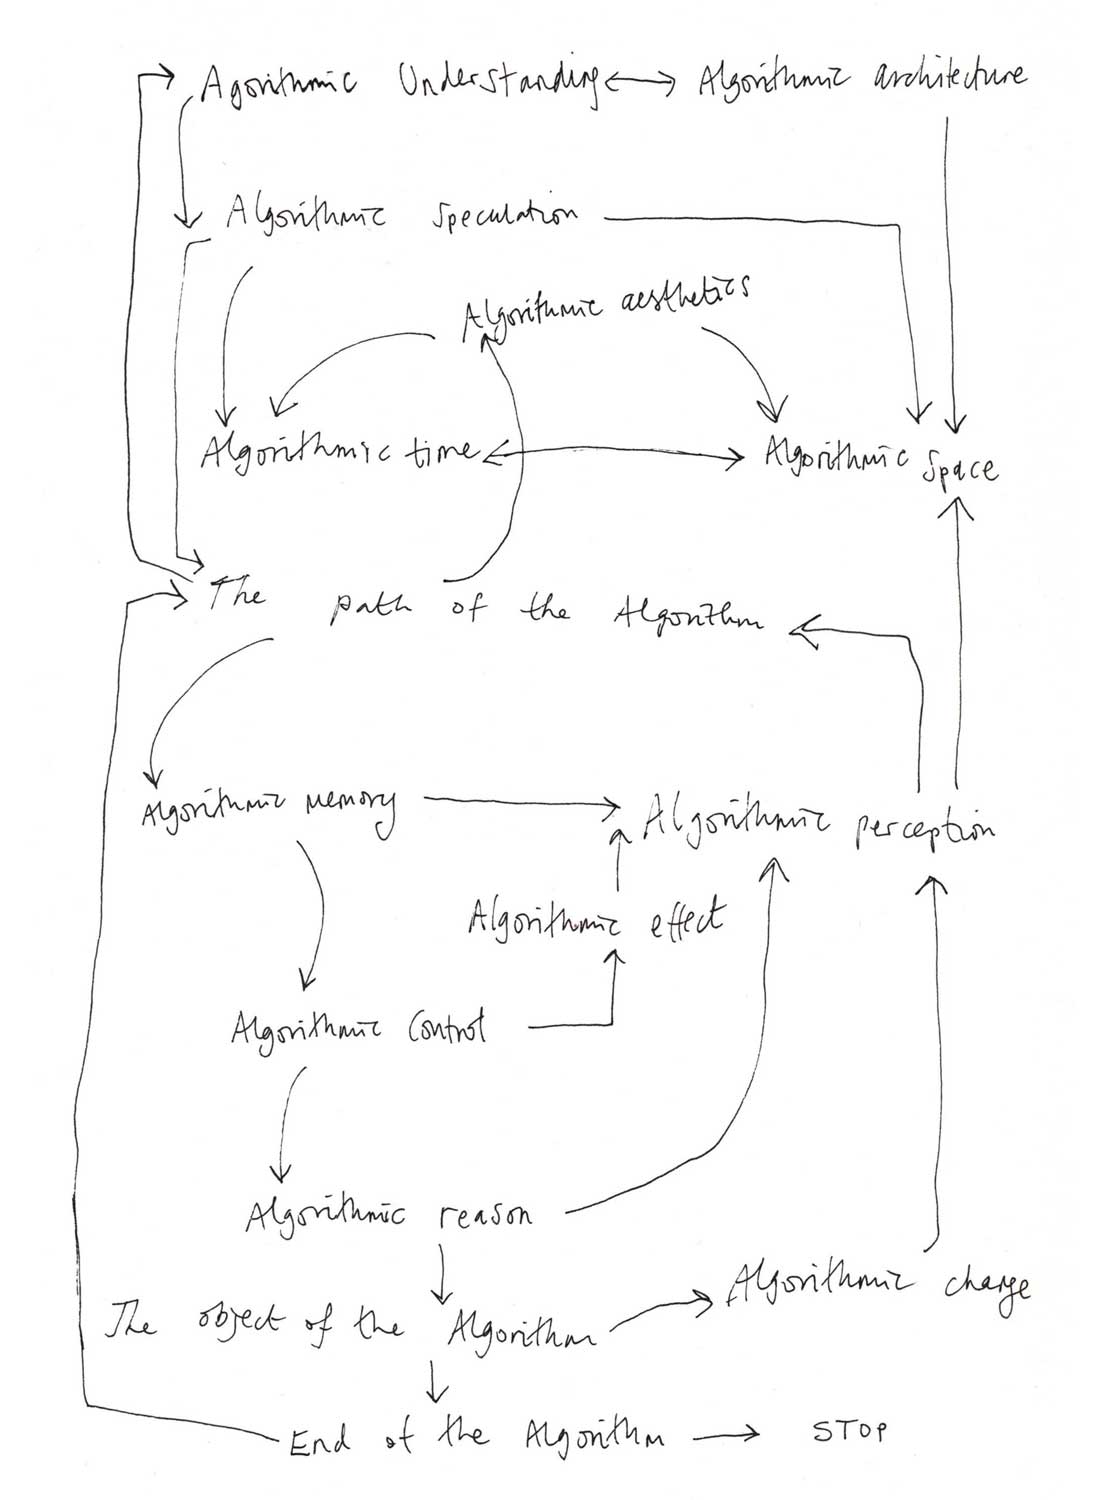 Agorithmic Understanding Algorithmic architecture
Algorithmic Speculation
Algorithmic aesthetics
Algorithmic time Algorithmic Space
The path of the Algorithm
Algorithmic memory Algorithmic perception
Algorithmic effect
Algorithmic Control
Algorithmic reason
Algorithmic change
The object of the Algorithm
End of the Algorithm STOP